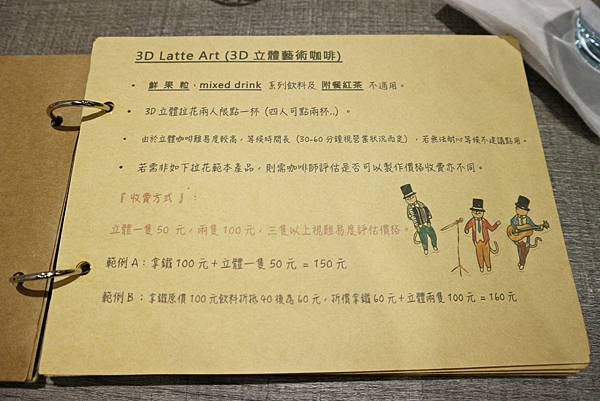 3D Latte Art (3D 立體藝術咖啡)
• 鮮果粒、mixed drink 系列飲料及 附餐紅茶 不適用。
• 3D立體拉花兩人限點一杯 (四人可點兩杯..) 。
• 由於立體咖啡難易度較高，等候時間長 (30-60分鐘視營業狀況而定) ，若無法耐心等候不建議點用。
• 若需非如下拉花範本產品，則需咖啡師評估是否可以製作價格收費亦不同。
『 收費方式 』：
立體一隻 50 元，兩隻 100 元，三隻以上視難易度評估價格。
範例 A：拿鐵 100 元＋立體一隻 50 元 = 150 元
範例 B：拿鐵原價 100 元飲料折抵 40 後為 60 元，折價拿鐵 60 元＋立體兩隻 100 元 = 160 元